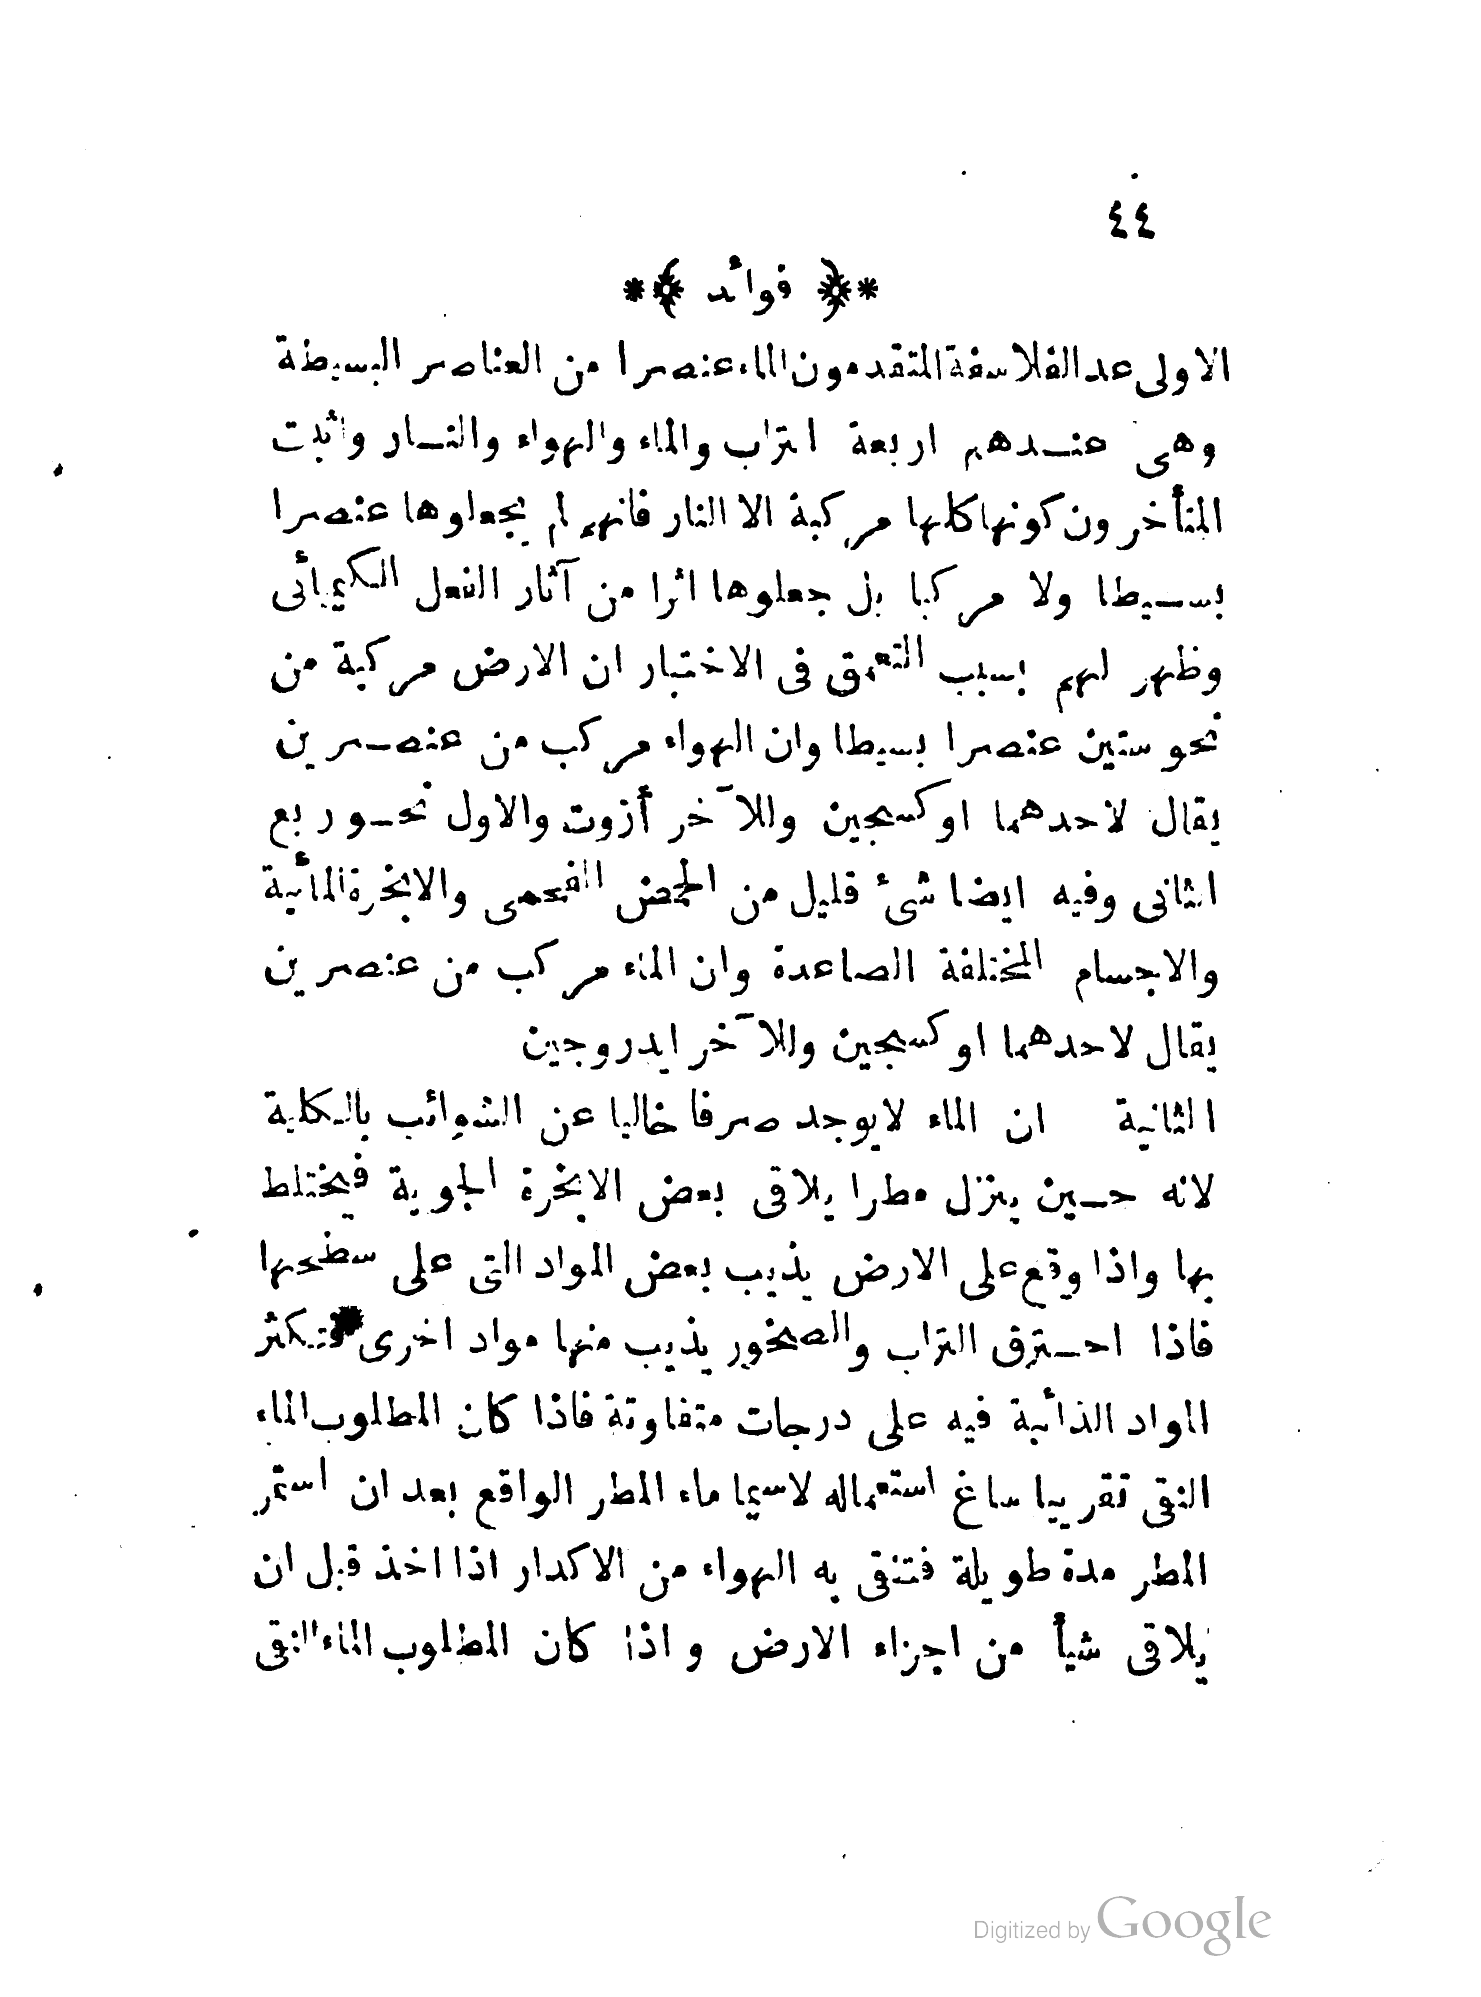 ٤٤
*﴿ فوائد ﴾*
الاولى عد الفلاسفة المتقدمون الماء عنصرا من العناصر البسيطة
وهى عندهم اربعة التراب والماء والهواء والنار واثبت
المتأخرون كونها كلها مركبة الا النار فانهم لم يجعلوها عنصرا
بسيطا ولا مركبا بل جعلوها اثرا من آثار الفعل الكيميائى
وظهر لهم بسبب التعمق فى الاختبار ان الارض مركبة من
نحو ستين عنصرا بسيطا وان الهواء مركب من عنصرين
يقال لاحدهما اوكسجين وللآخر أزوت والاول نحو ربع
الثانى وفيه ايضا شئ قليل من الحمض الفحمى والابخرة المائية
والاجسام المختلفة الصاعدة وان الماء مركب من عنصرين
يقال لاحدهما اوكسجين وللآخر ايدروجين
الثانية ان الماء لايوجد صرفا خاليا عن الشوائب بالكلية
لانه حين ينزل مطرا يلاقى بعض الابخرة الجوية فيختلط
بها واذا وقع على الارض يذيب بعض المواد التى على سطحها
فاذا احترق التراب والصخور يذيب منها مواد اخرى فتكثر
المواد الذائبة فيه على درجات متفاوتة فاذا كان المطلوب الماء
النقى تقريبا ساغ استعماله لاسيما ماء المطر الواقع بعد ان استمر
المطر مدة طويلة فتنقى به الهواء من الاكدار اذا اخذ قبل ان
يلاقى شيأ من اجزاء الارض واذا كان المطلوب الماء النقى
Digitized by Google